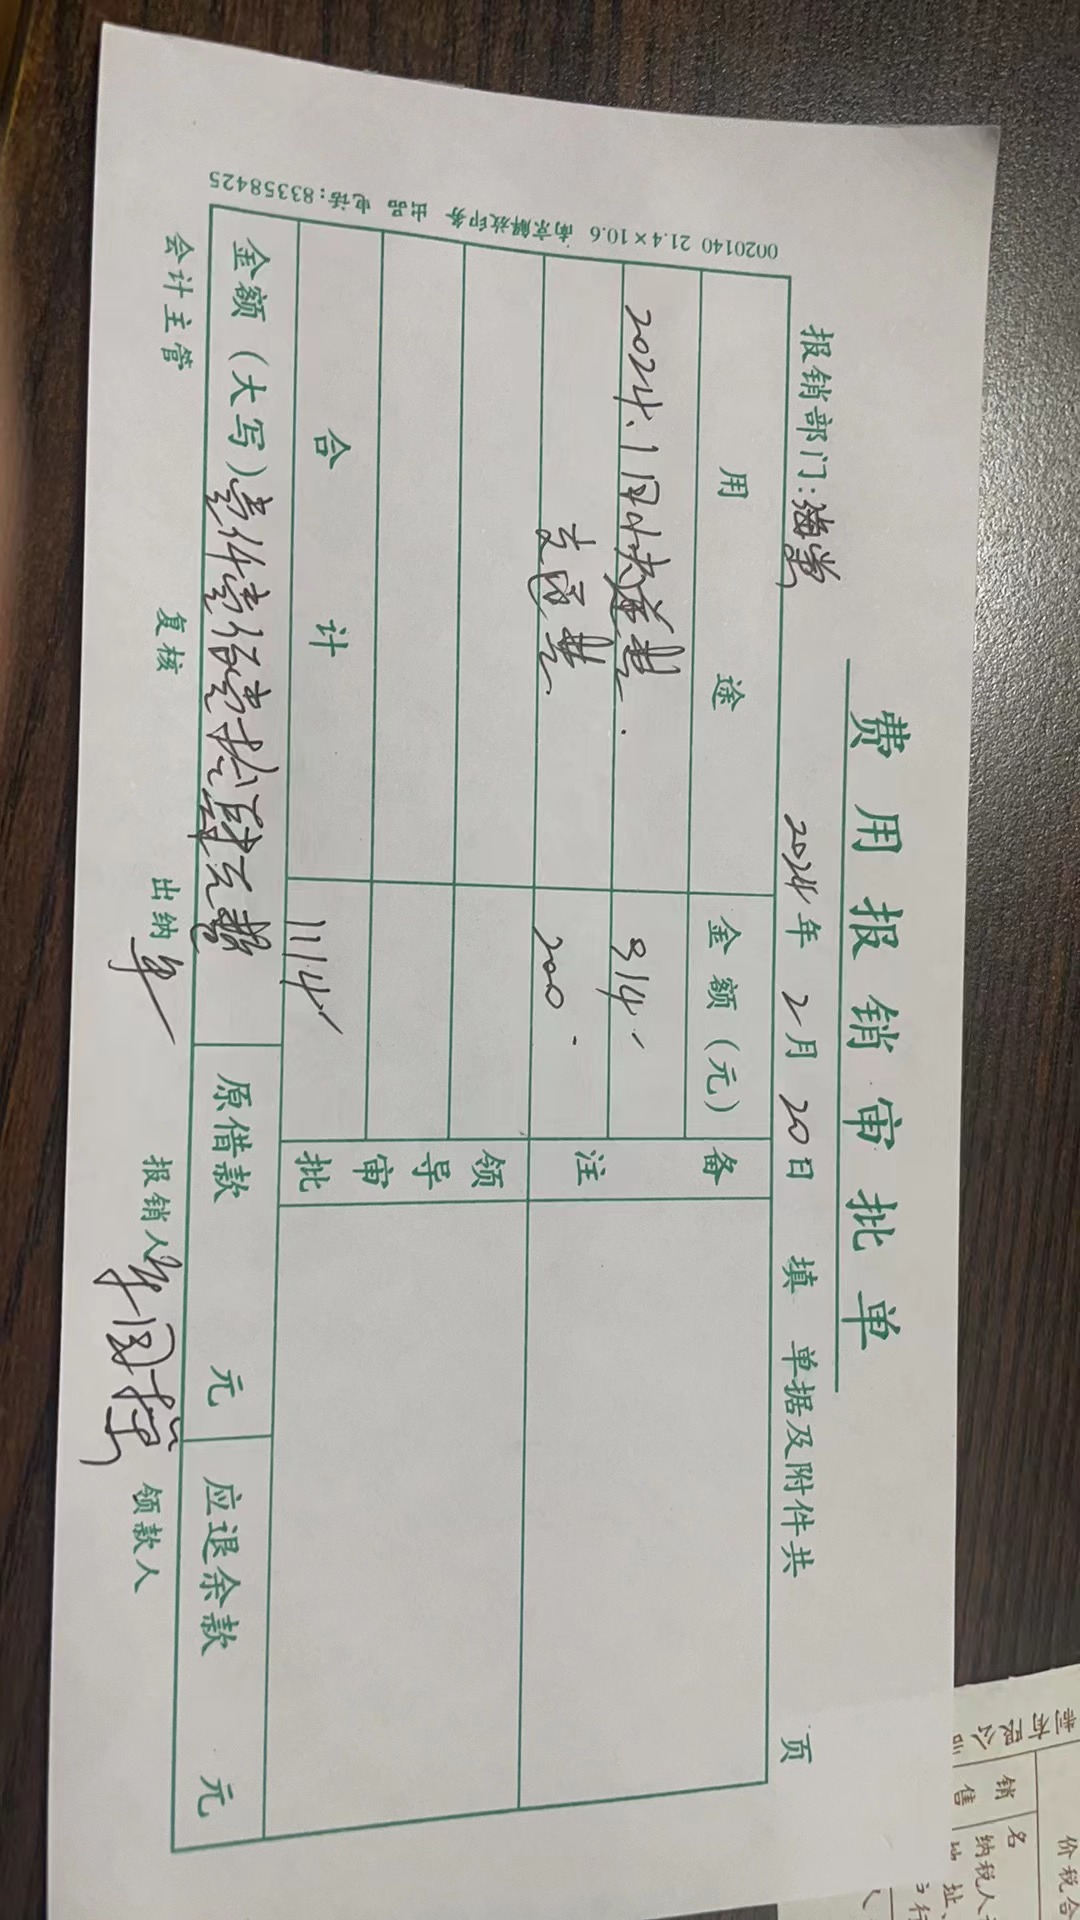 费用报销审批单
报销部门:海棠 2024年 2月 20日 填 单据及附件共 页
用途 金额(元) 备注
2024.1月 914.
交通费. 200.
合计 1114
领导审批
金额(大写)壹仟壹佰壹拾肆元整 原借款 元 应退余款 元
会计主管 复核 出纳 报销人 领款人
0020140 21.4×10.6 南京解放印务 出品 电话:83358425
制有限公
销售
名
纳税人
址、
行
价税合